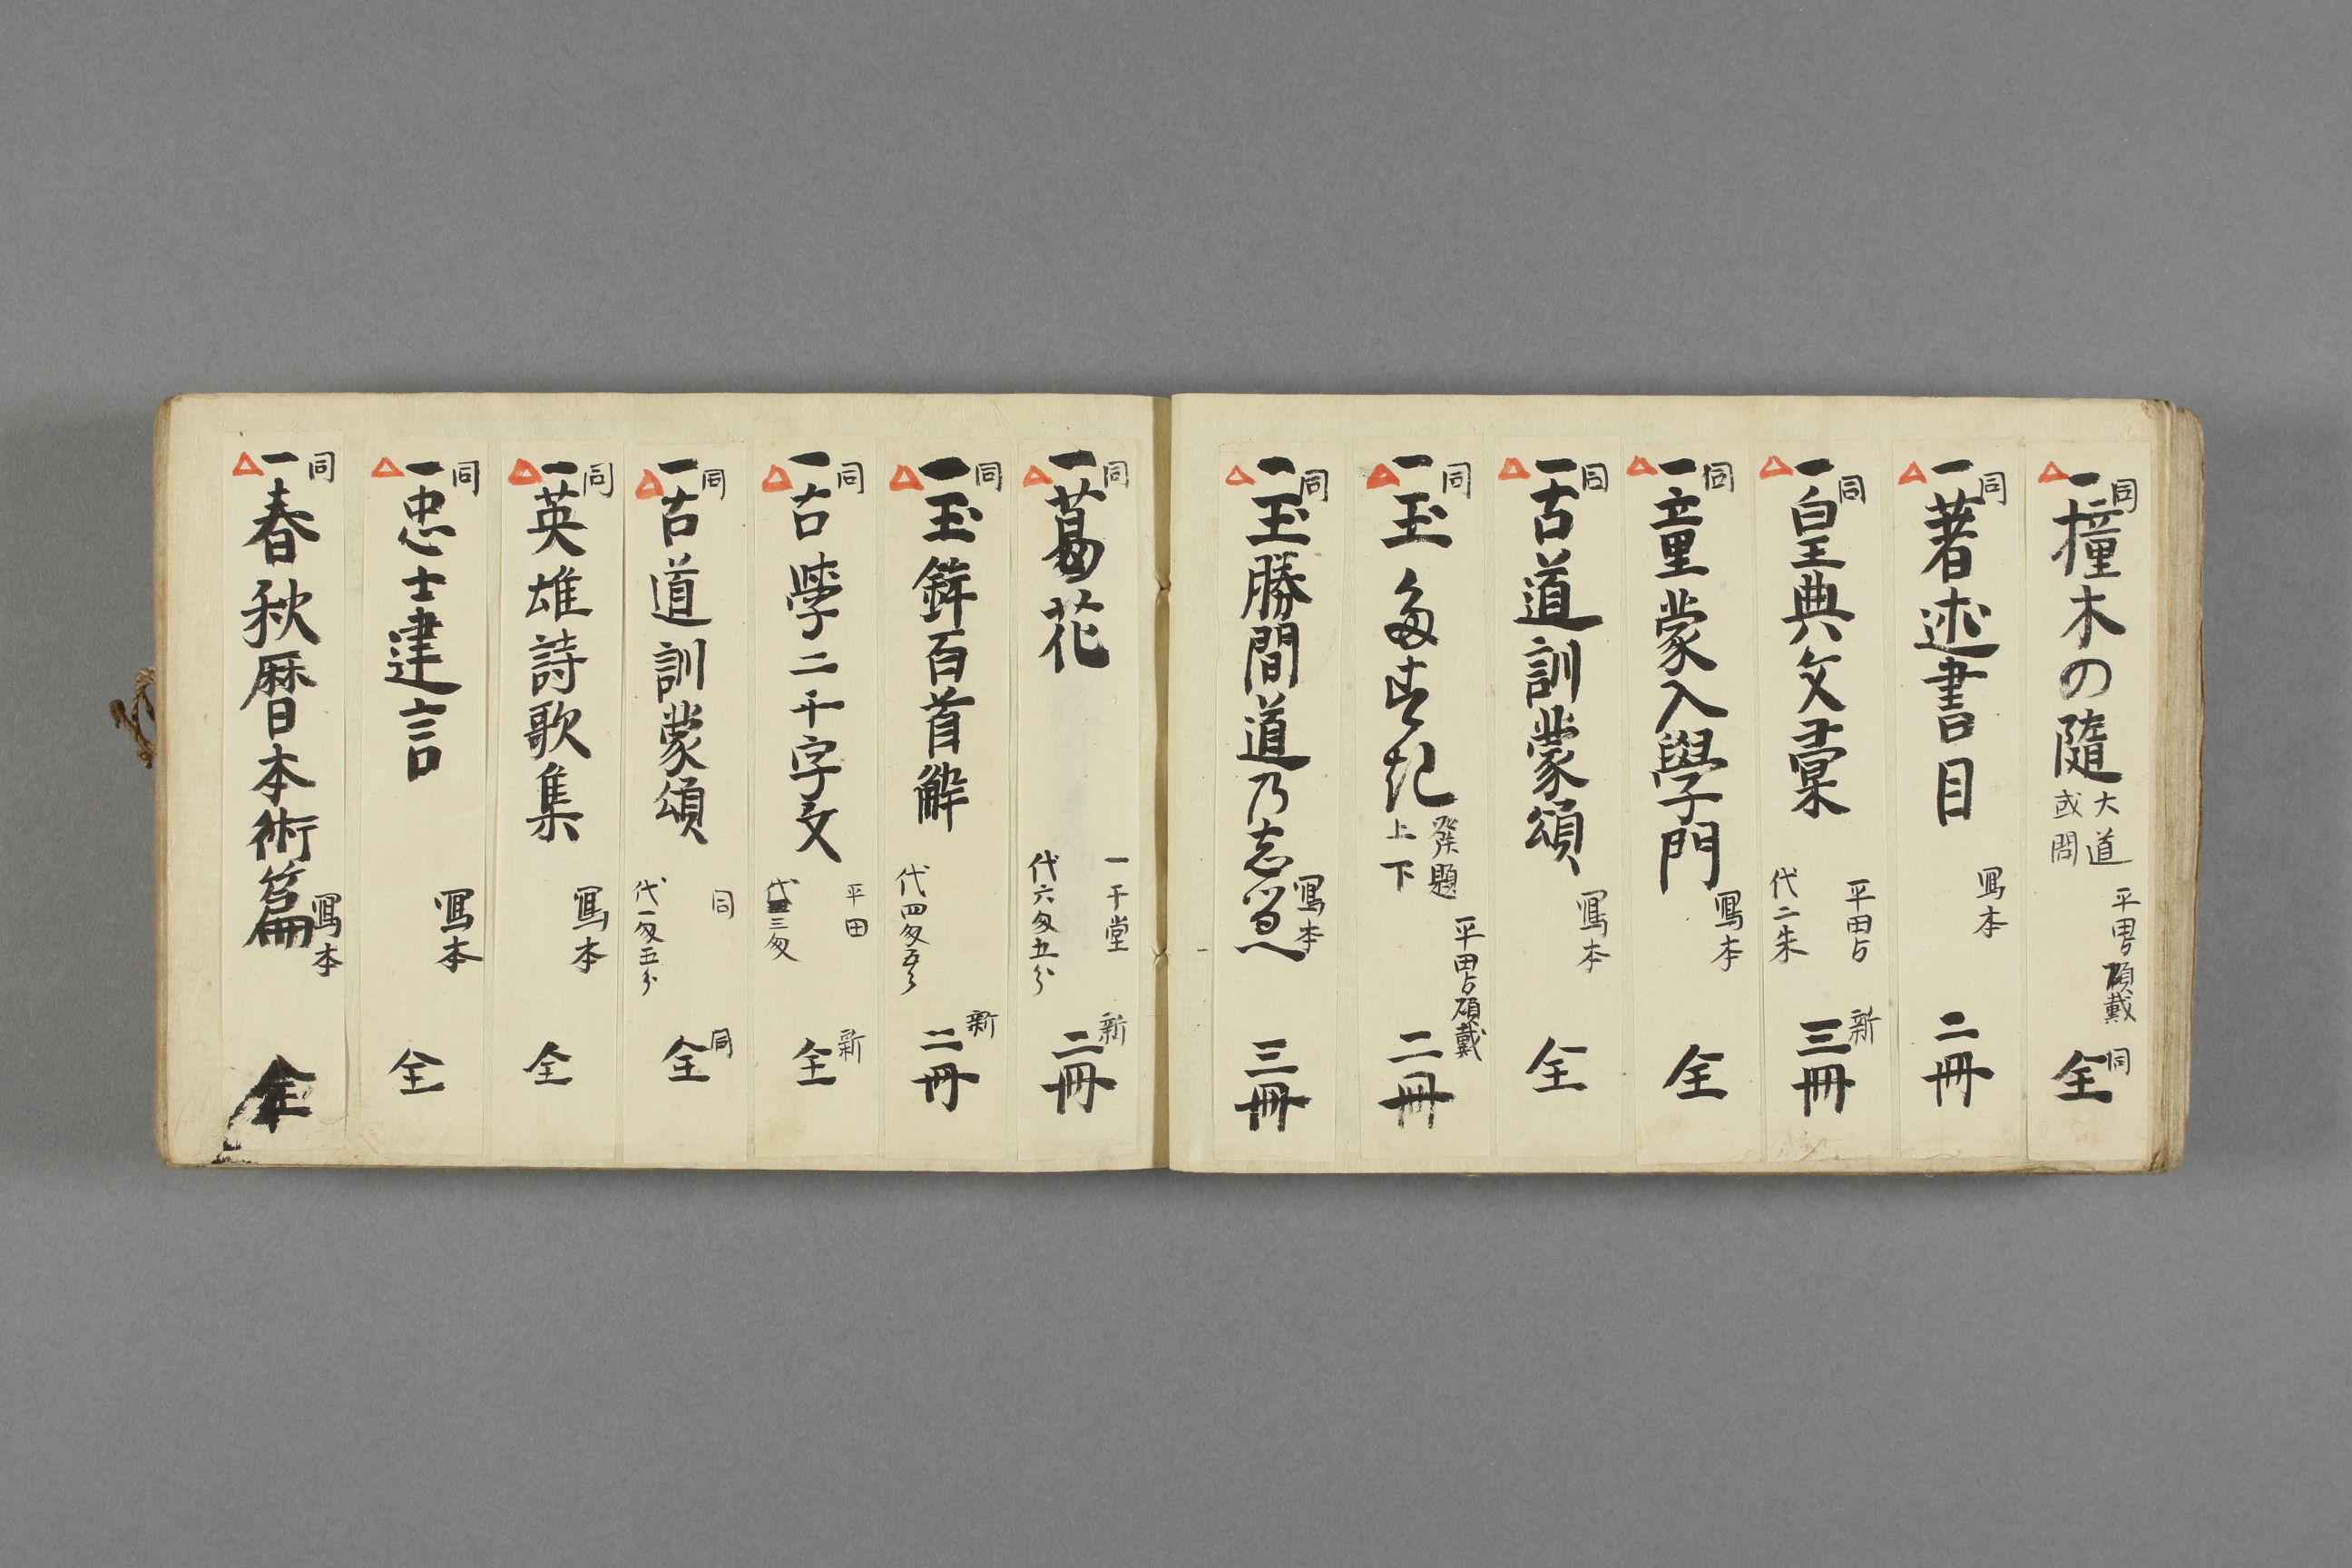 同
一撞木の隨 大道或問 平田ゟ頂戴 同 全
同
一著述書目 寫本 二冊
同
一皇典文彙 平田ゟ 代二朱 新 三冊
同
一童蒙入學門 寫本 全
同
一古道訓蒙頌 寫本 全
同
一玉多す記 發題上下 平田ゟ頂戴 二冊
同
一玉勝間道乃 寫本 三冊
同
一葛花 一千堂 代六匁五分 新 二冊
同
一玉鉾百首解 代四匁五分 新 二冊
同
一古學二千字文 平田 代三匁 新 全
同
一古道訓蒙頌 同 代一匁五分 同 全
同
一英雄詩歌集 寫本 全
同
一忠士建言 寫本 全
同
一春秋暦日本術篇 寫本 全